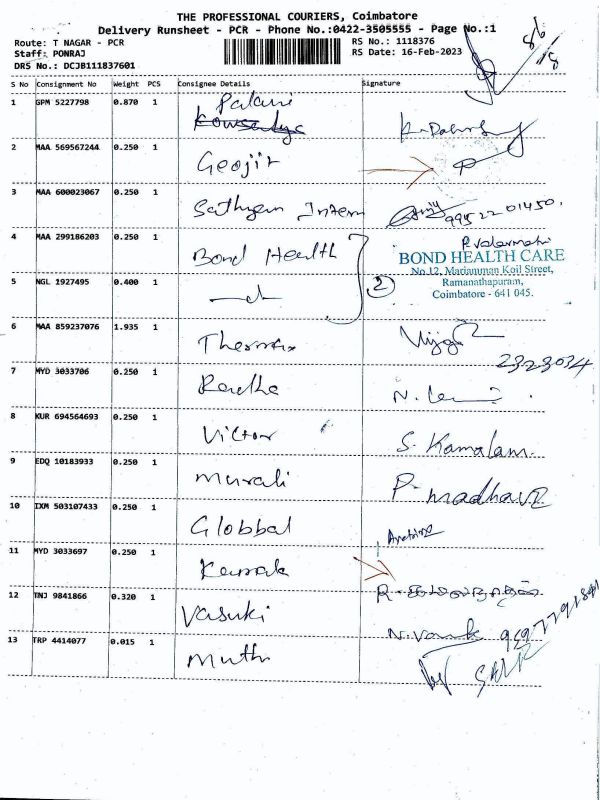 THE PROFESSIONAL COURIERS, Coimbatore
Delivery Runsheet - PCR - Phone No.:0422-3505555 - Page No.:1
Route: T NAGAR - PCR RS No.: 1118376
Staff: PONRAJ RS Date: 16-Feb-2023
DRS No.: DCJB111837601
S No Consignment No Weight PCS Consignee Details Signature
1 GPM 5227798 0.870 1 Palani
2 MAA 569567244 0.250 1 Geojit
3 MAA 600023067 0.250 1 Sathyam Intern 99522 01450.
4 MAA 299186203 0.250 1 Bond Health P. Valarmathi
BOND HEALTH CARE
No.12, Mariamman Koil Street,
5 NGL 1927495 0.400 1 2 Ramanathapuram,
Coimbatore - 641 045.
6 MAA 859237076 1.935 1 Thermax
2323034
7 MYD 3033706 0.250 1 Radha
8 KUR 694564693 0.250 1 Victor S. Kamalam.
9 EDQ 10183933 0.250 1 Murali P. madhav
10 IXM 503107433 0.250 1 Globbal
11 MYD 3033697 0.250 1
12 TNJ 9841866 0.320 1 Vasuki
13 TRP 4414077 0.015 1 Muthu